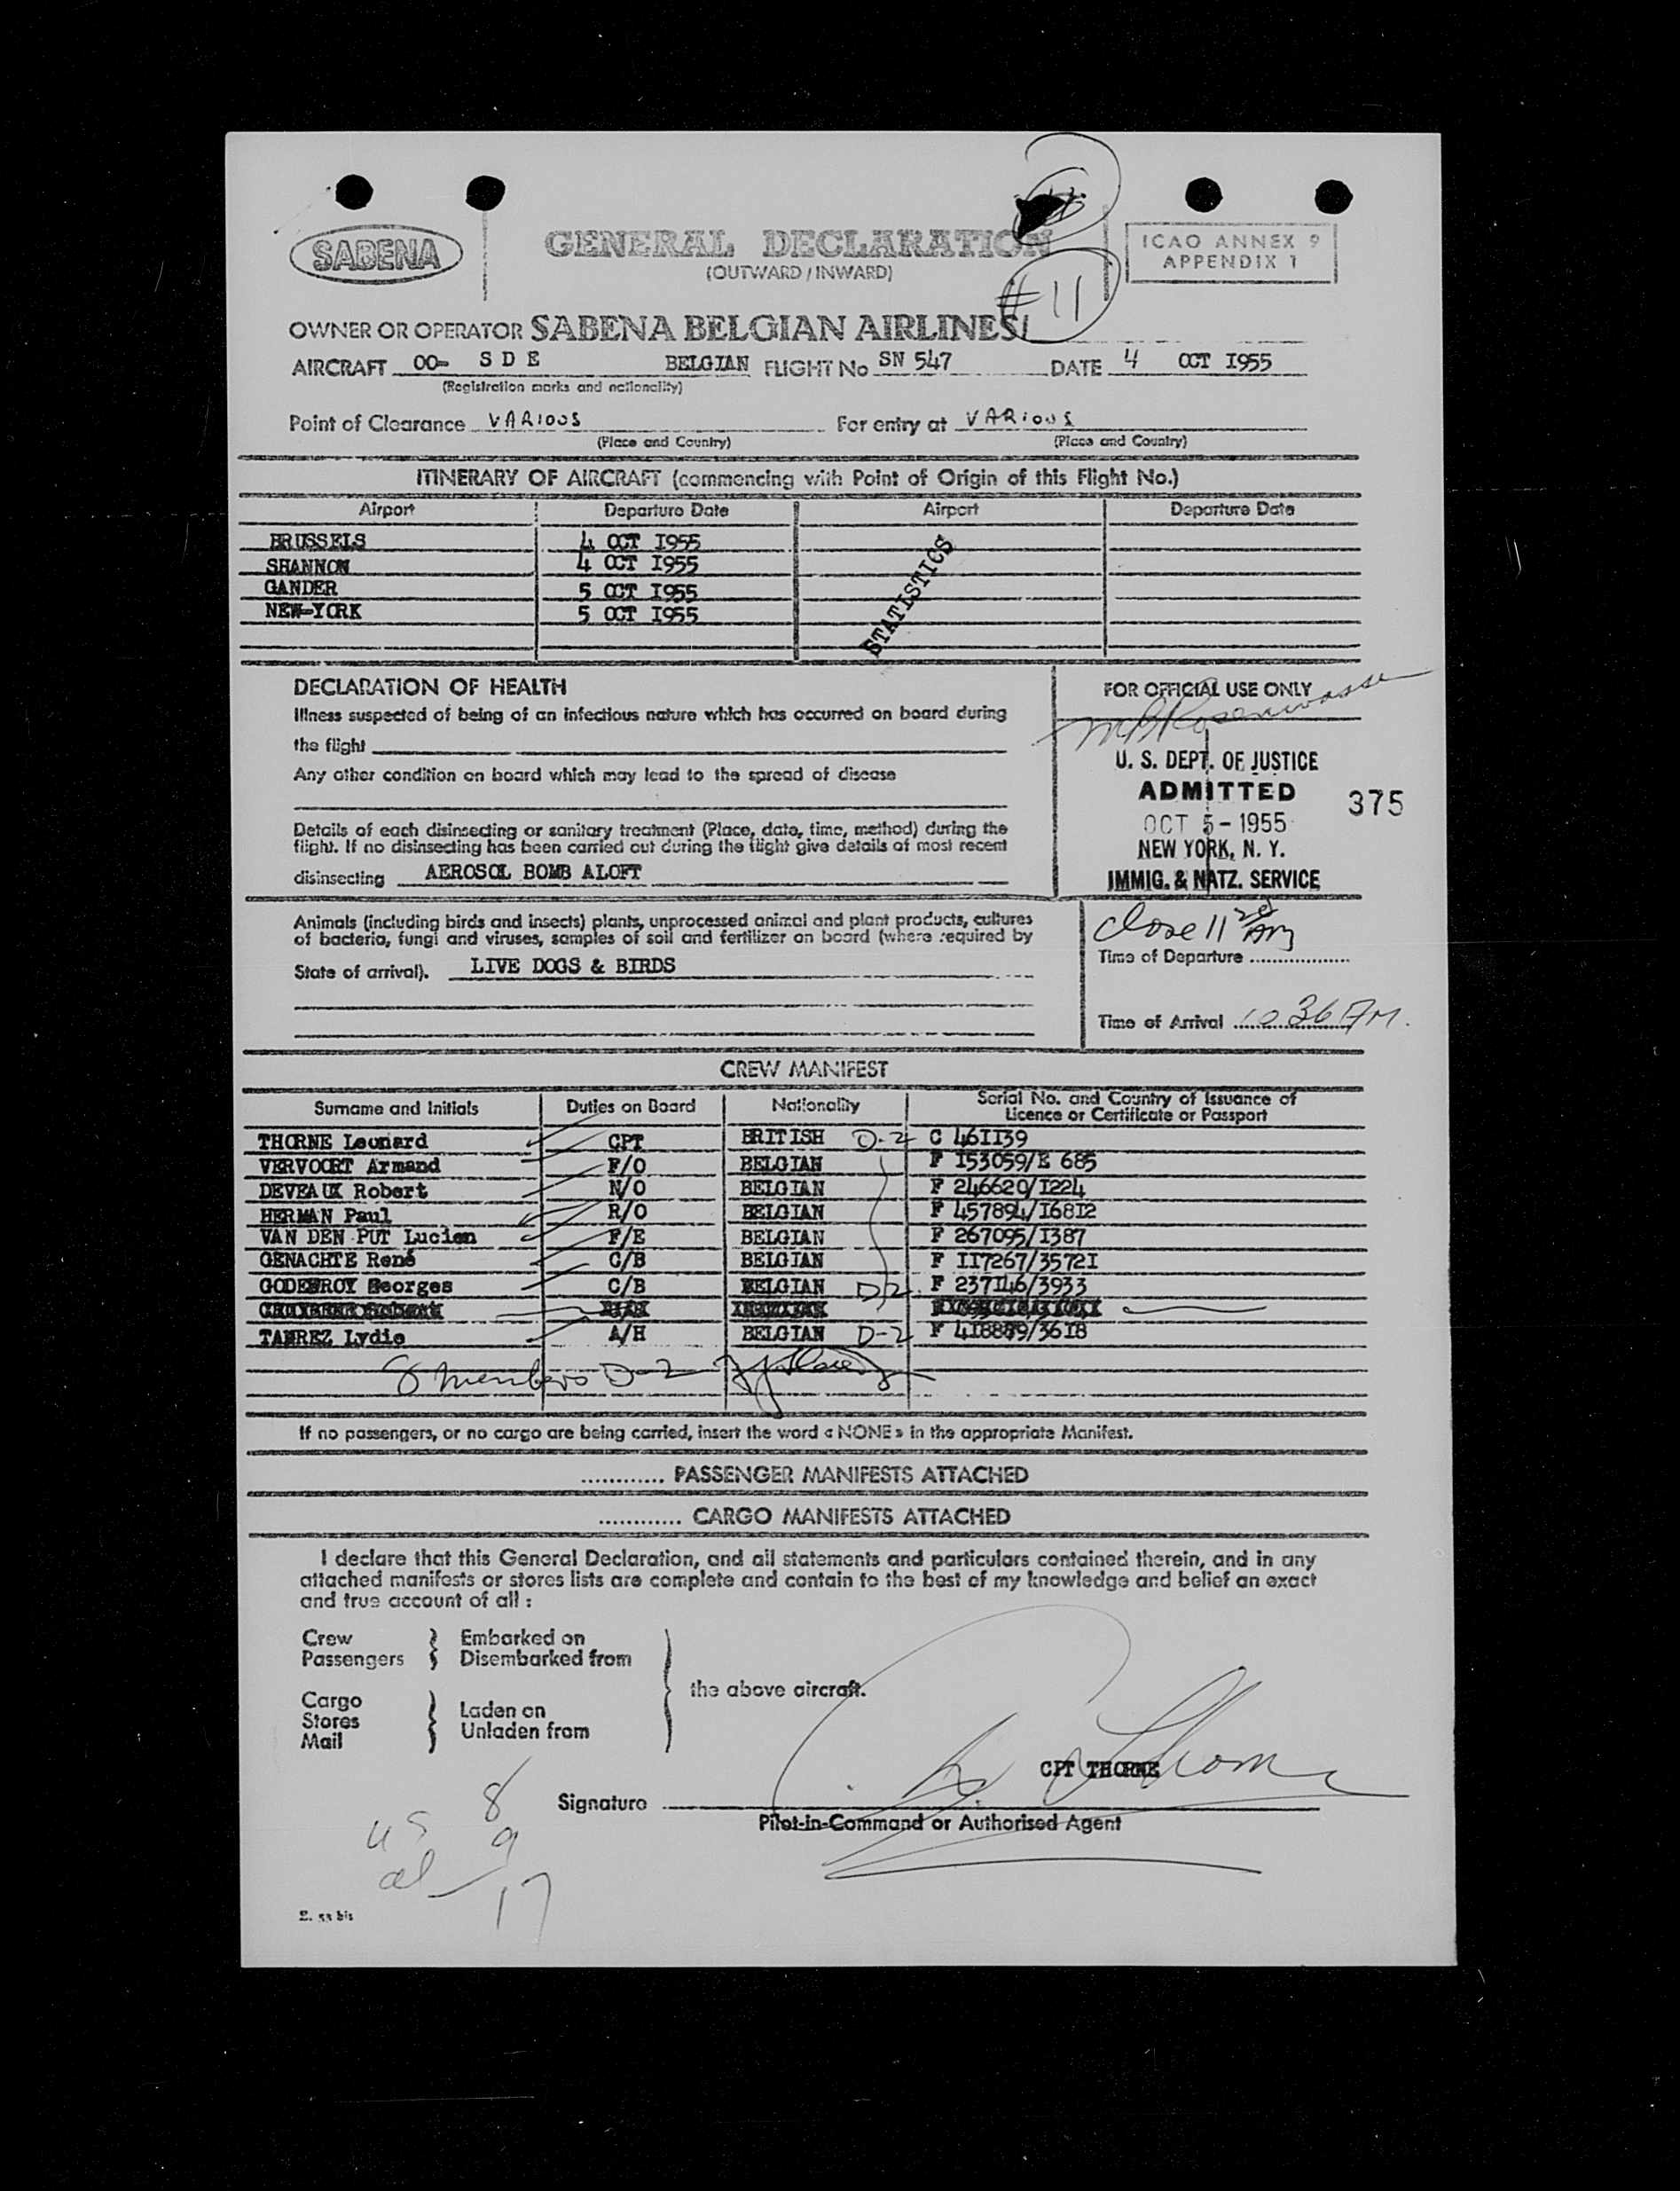 SABENA
GENERAL DECLARATION
(OUTWARD / INWARD)
ICAO ANNEX 9
APPENDIX 1
#11
OWNER OR OPERATOR SABENA BELGIAN AIRLINES
AIRCRAFT OO- S D E BELGIAN FLIGHT No SN 547 DATE 4 OCT I955
(Registration marks and nationality)
Point of Clearance VARIOUS For entry at VARIOUS
(Place and Country) (Place and Country)
ITINERARY OF AIRCRAFT (commencing with Point of Origin of this Flight No.)
Airport Departure Date Airport Departure Date
BRUSSELS 4 OCT I955
SHANNON 4 OCT I955
GANDER 5 OCT I955
NEW-YORK 5 OCT I955
STATISTICS
DECLARATION OF HEALTH
Illness suspected of being of an infectious nature which has occurred on board during
the flight
Any other condition on board which may lead to the spread of disease
Details of each disinsecting or sanitary treatment (Place, date, time, method) during the
flight. If no disinsecting has been carried out during the flight give details of most recent
disinsecting AEROSOL BOMB ALOFT
FOR OFFICIAL USE ONLY
U. S. DEPT. OF JUSTICE
ADMITTED 375
OCT 5 - 1955
NEW YORK, N. Y.
IMMIG. & NATZ. SERVICE
Animals (including birds and insects) plants, unprocessed animal and plant products, cultures
of bacteria, fungi and viruses, samples of soil and fertilizer on board (where required by
State of arrival). LIVE DOGS & BIRDS
close 11 AM
Time of Departure
Time of Arrival 10 36 AM.
CREW MANIFEST
Surname and Initials Duties on Board Nationality Serial No. and Country of Issuance of
Licence or Certificate or Passport
THORNE Leonard CPT BRITISH D-2 C 46II39
VERVOORT Armand F/O BELGIAN F I53059/E 685
DEVEAUX Robert N/O BELGIAN F 246620/I224
HERMAN Paul R/O BELGIAN F 457894/I68I2
VAN DEN PUT Lucien F/E BELGIAN F 267095/I387
GENACHTE René C/B BELGIAN F II7267/3572I
GODEFROY Georges C/B BELGIAN D/2. F 237I46/3933
TAMREZ Lydie A/H BELGIAN D-2 F 4I8889/36I8
8 members D-2
If no passengers, or no cargo are being carried, insert the word « NONE » in the appropriate Manifest.
............ PASSENGER MANIFESTS ATTACHED
............ CARGO MANIFESTS ATTACHED
I declare that this General Declaration, and all statements and particulars contained therein, and in any
attached manifests or stores lists are complete and contain to the best of my knowledge and belief an exact
and true account of all :
Crew Embarked on
Passengers Disembarked from
the above aircraft.
Cargo Laden on
Stores Unladen from
Mail
CPT THORNE
Signature
Pilot-in-Command or Authorised Agent
us 8
al 9
17
E. 53 bis